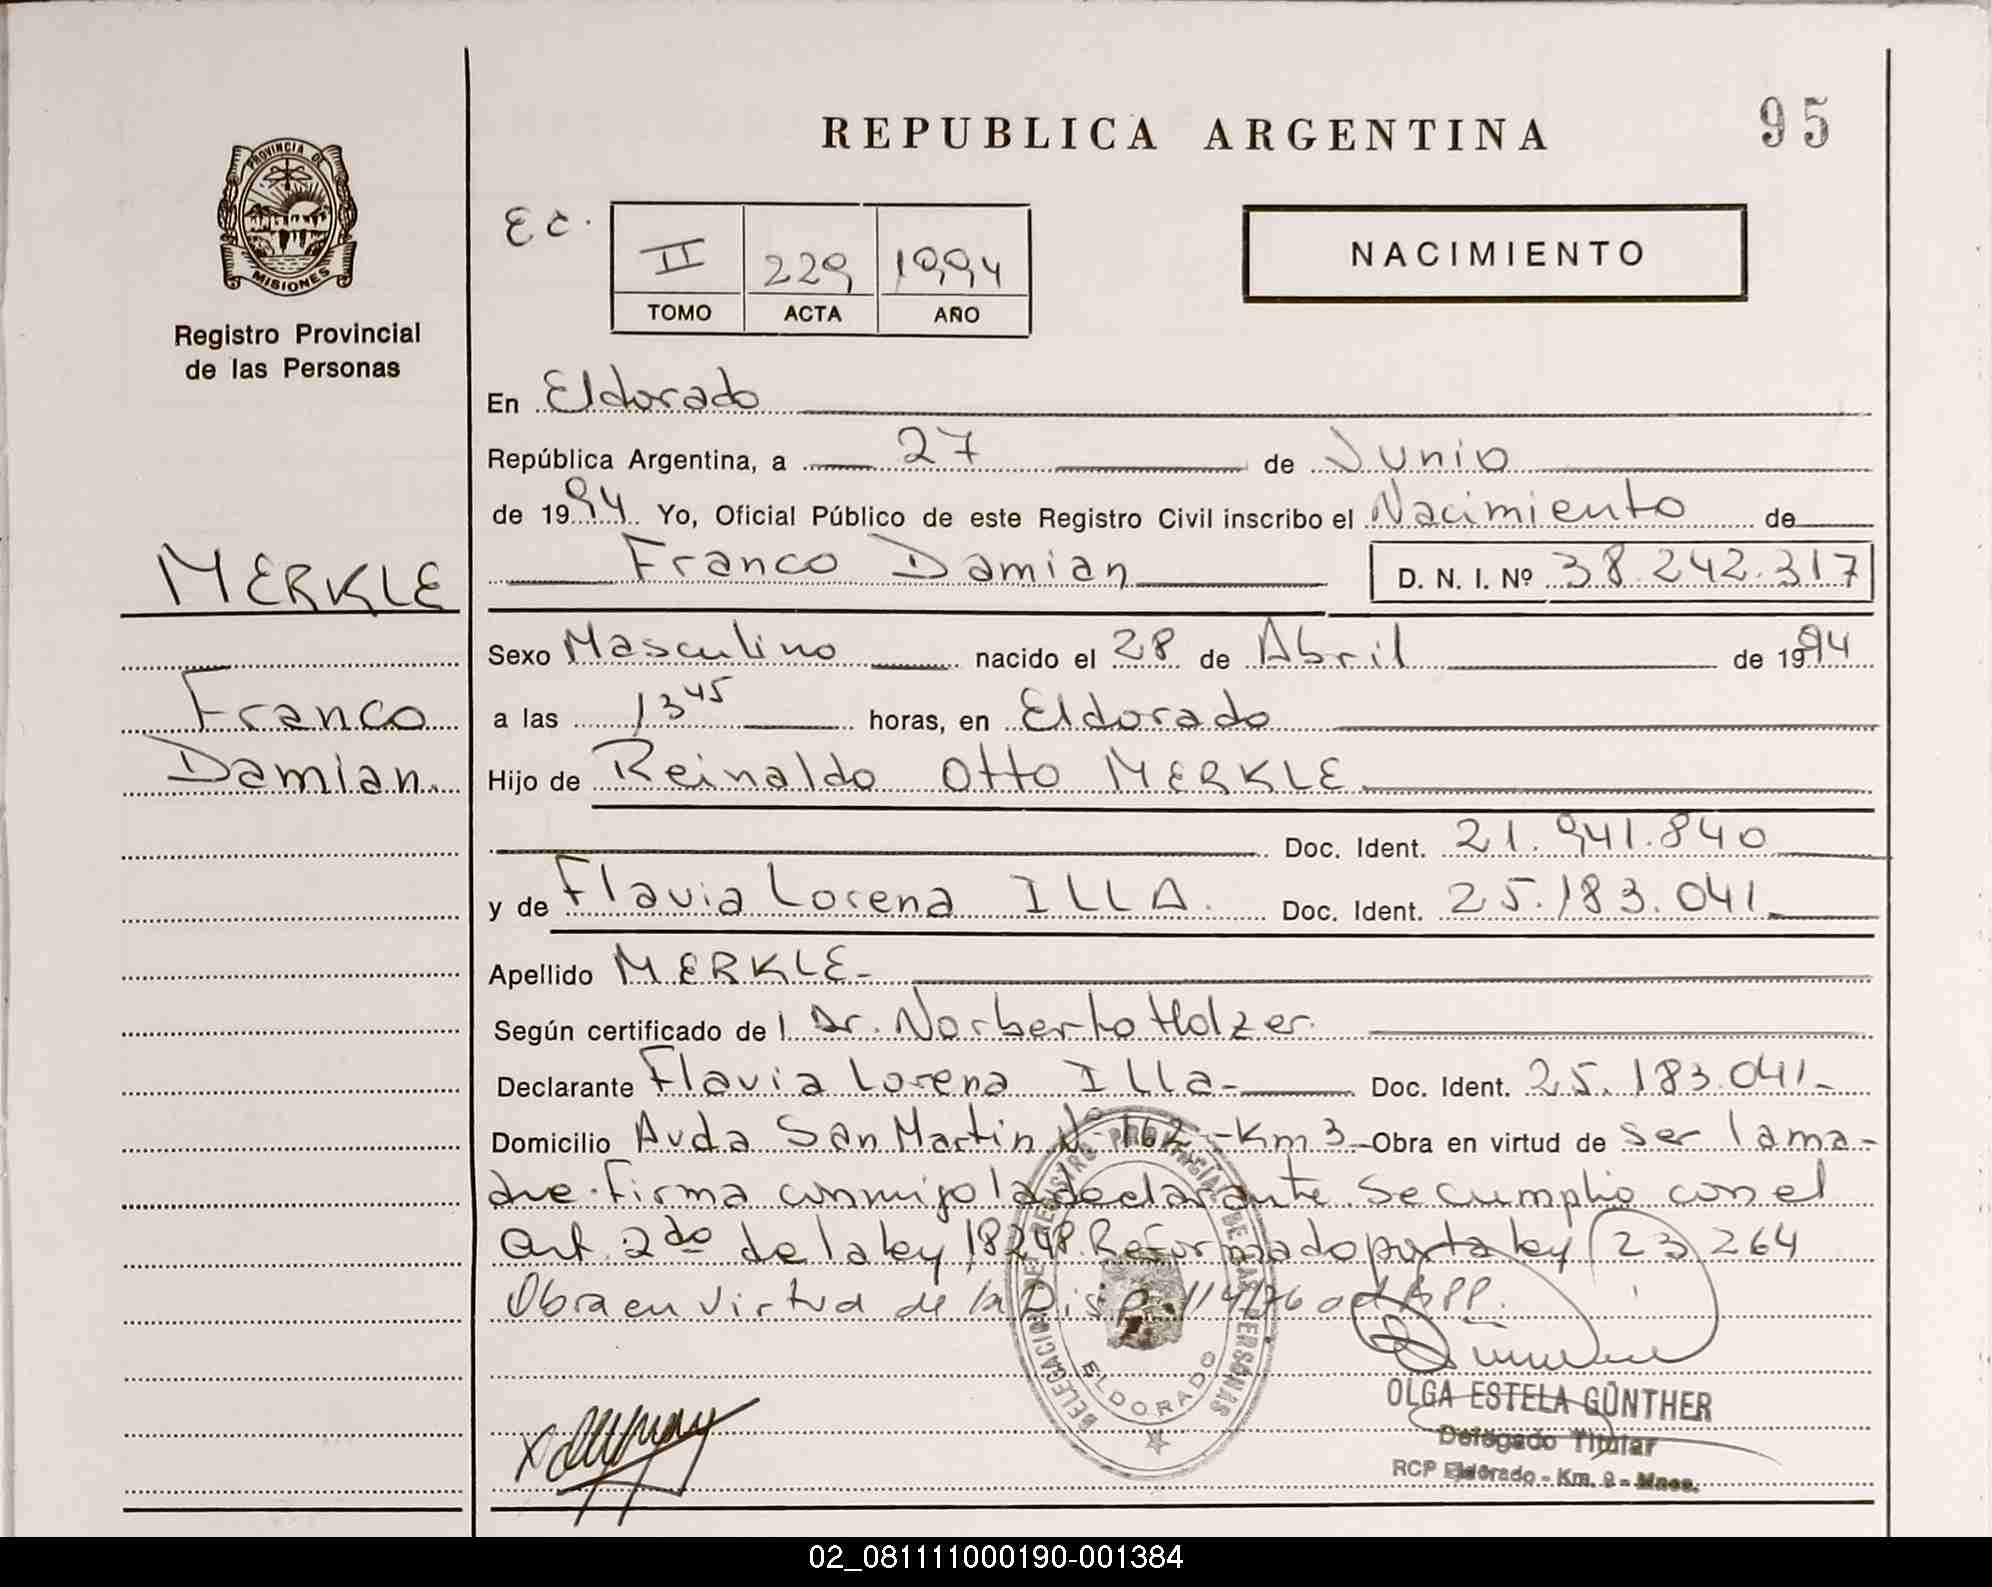 95
REPUBLICA ARGENTINA
PROVINCIA DE
MISIONES
Registro Provincial
de las Personas
Ec.
II 229 1994
TOMO ACTA AÑO
NACIMIENTO
En Eldorado
República Argentina, a 27 de Junio
de 1994 Yo, Oficial Público de este Registro Civil inscribo el Nacimiento de
MERKLE
Franco Damian D. N. I. Nº 38.242.317
Sexo Masculino nacido el 28 de Abril de 1994
Franco
a las 13 45 horas, en Eldorado
Damian.
Hijo de Reinaldo Otto MERKLE
Doc. Ident. 21.941.840
y de Flavia Lorena ILLA. Doc. Ident. 25.183.041
Apellido MERKLE-
Según certificado de l Dr. Norberto Holzer.
Declarante Flavia Lorena Illa- Doc. Ident. 25.183.041-
Domicilio Avda San Martin Nº 162 - Km 3 - Obra en virtud de ser la ma-
dre. Firma conmigo la declarante. Se cumplio con el
art. 2do de la ley 18248. Reformado por la ley 23264
Obra en virtud de la Disp. 114/76
DELEGACION DE REGISTRO PROVINCIAL DE LAS PERSONAS
ELDORADO
OLGA ESTELA GÜNTHER
Delegado Titular
RCP Eldorado - Km. 9 - Mnes.
02_081111000190-001384